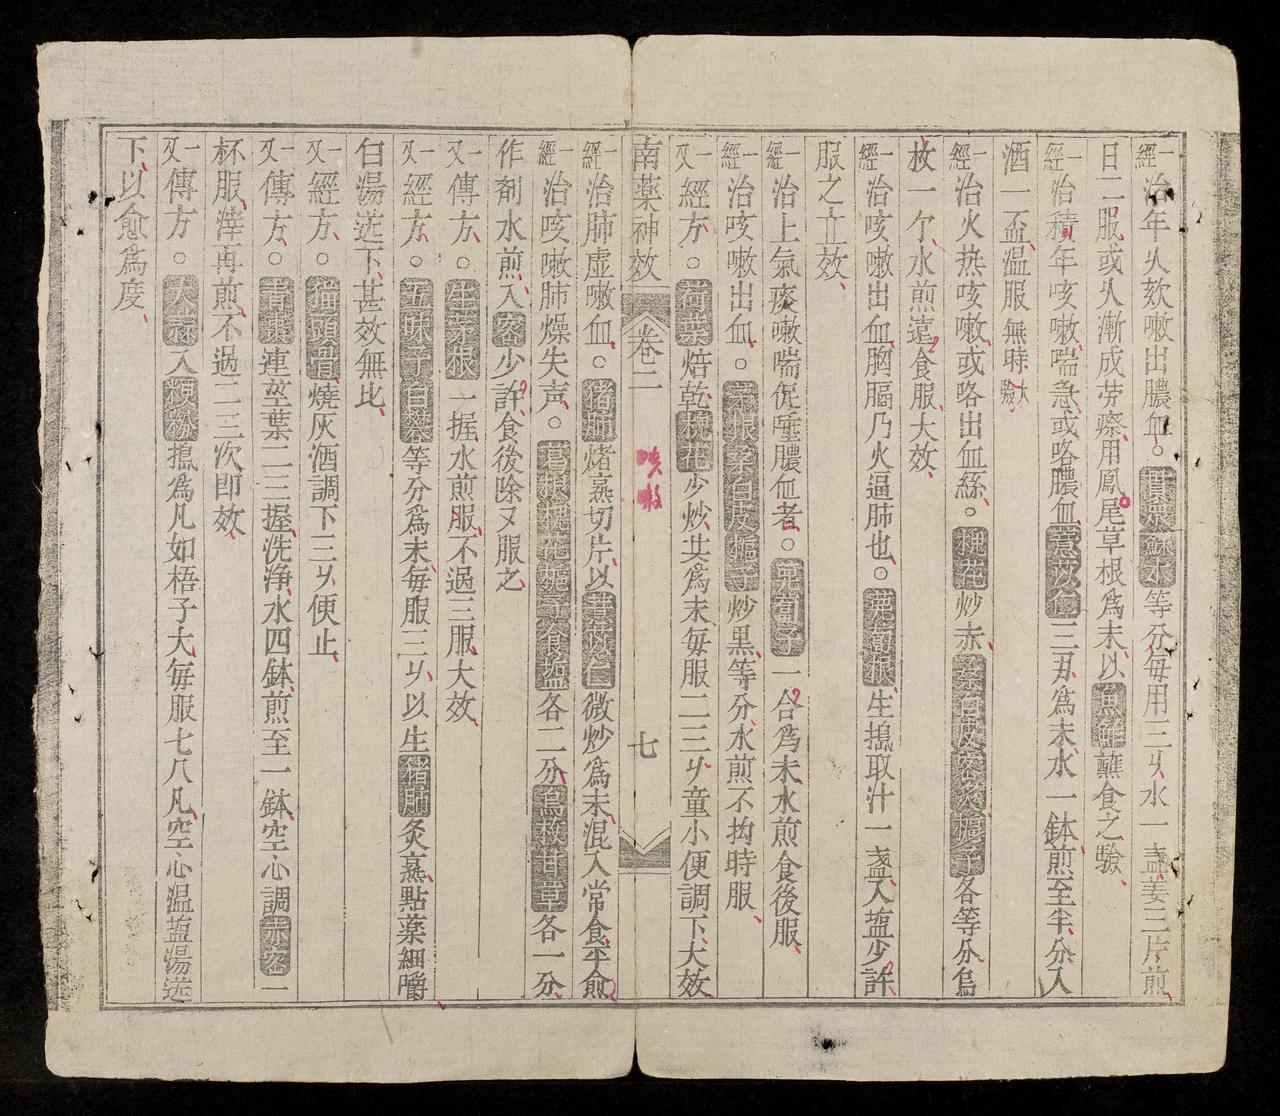 一經治年久欬嗽出膿血。蘇木等分每用三ㄐ水一盞姜三片煎
日二服或久漸成劳瘵用鳳尾草根為末以魚鮓蘸食之驗
一經治積年咳嗽喘急或咯膿血薏苡仁三刄為末水一鉢煎至半分入
酒一盃温服無時大驗
一經治火热咳嗽或咯出血絲。槐花炒赤桑白皮各等分烏
枚一个水煎遠食服大效
一經治咳嗽出血胸膈乃火逼肺也。蘿蔔根生搗取汁一盞入塩少許
服之立效
一經治上氣痰嗽喘促唾膿血者。蘿蔔子一合為末水煎食後服
一經治咳嗽出血。茅根桑白皮梔子炒黒等分水煎不拘時服
一又經方。荷葉焙乾槐花少炒共為末每服二三ㄐ童小便調下大效
南藥神效 卷二 七
咳嗽
一經治肺虚嗽血。猪肺煮熹切片以薏苡仁微炒為末混入常食平愈
一經治咳嗽肺燥失声。葛根槐花梔子食塩各二分烏枚甘草各一分
作剤水煎入密少許食後除又服之
一又傳方。生茅根一握水煎服不過三服大效
一又經方。五味子白礬等分為末每服三ㄐ以生猪肺灸熹點藥細嚼
白湯送下甚效無比
一又經方。猫頭骨燒灰酒調下三ㄐ便止
一又傳方。青棗連莖葉二三握洗浄水四鉢煎至一鉢空心調赤密一
杯服滓再煎不過二三次即效
一又傳方。大蒜入粳粉搗為凡如梧子大每服七八凡空心温塩湯送
下以愈為度